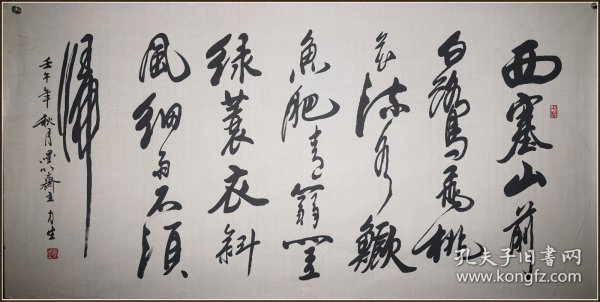 西塞山前
白鹭鸶飞桃
花流水鳜
鱼肥青箬笠
绿蓑衣斜
风细雨不须
归
壬午年秋月墨心斋主力生
孔夫子旧书网
www.kongfz.com